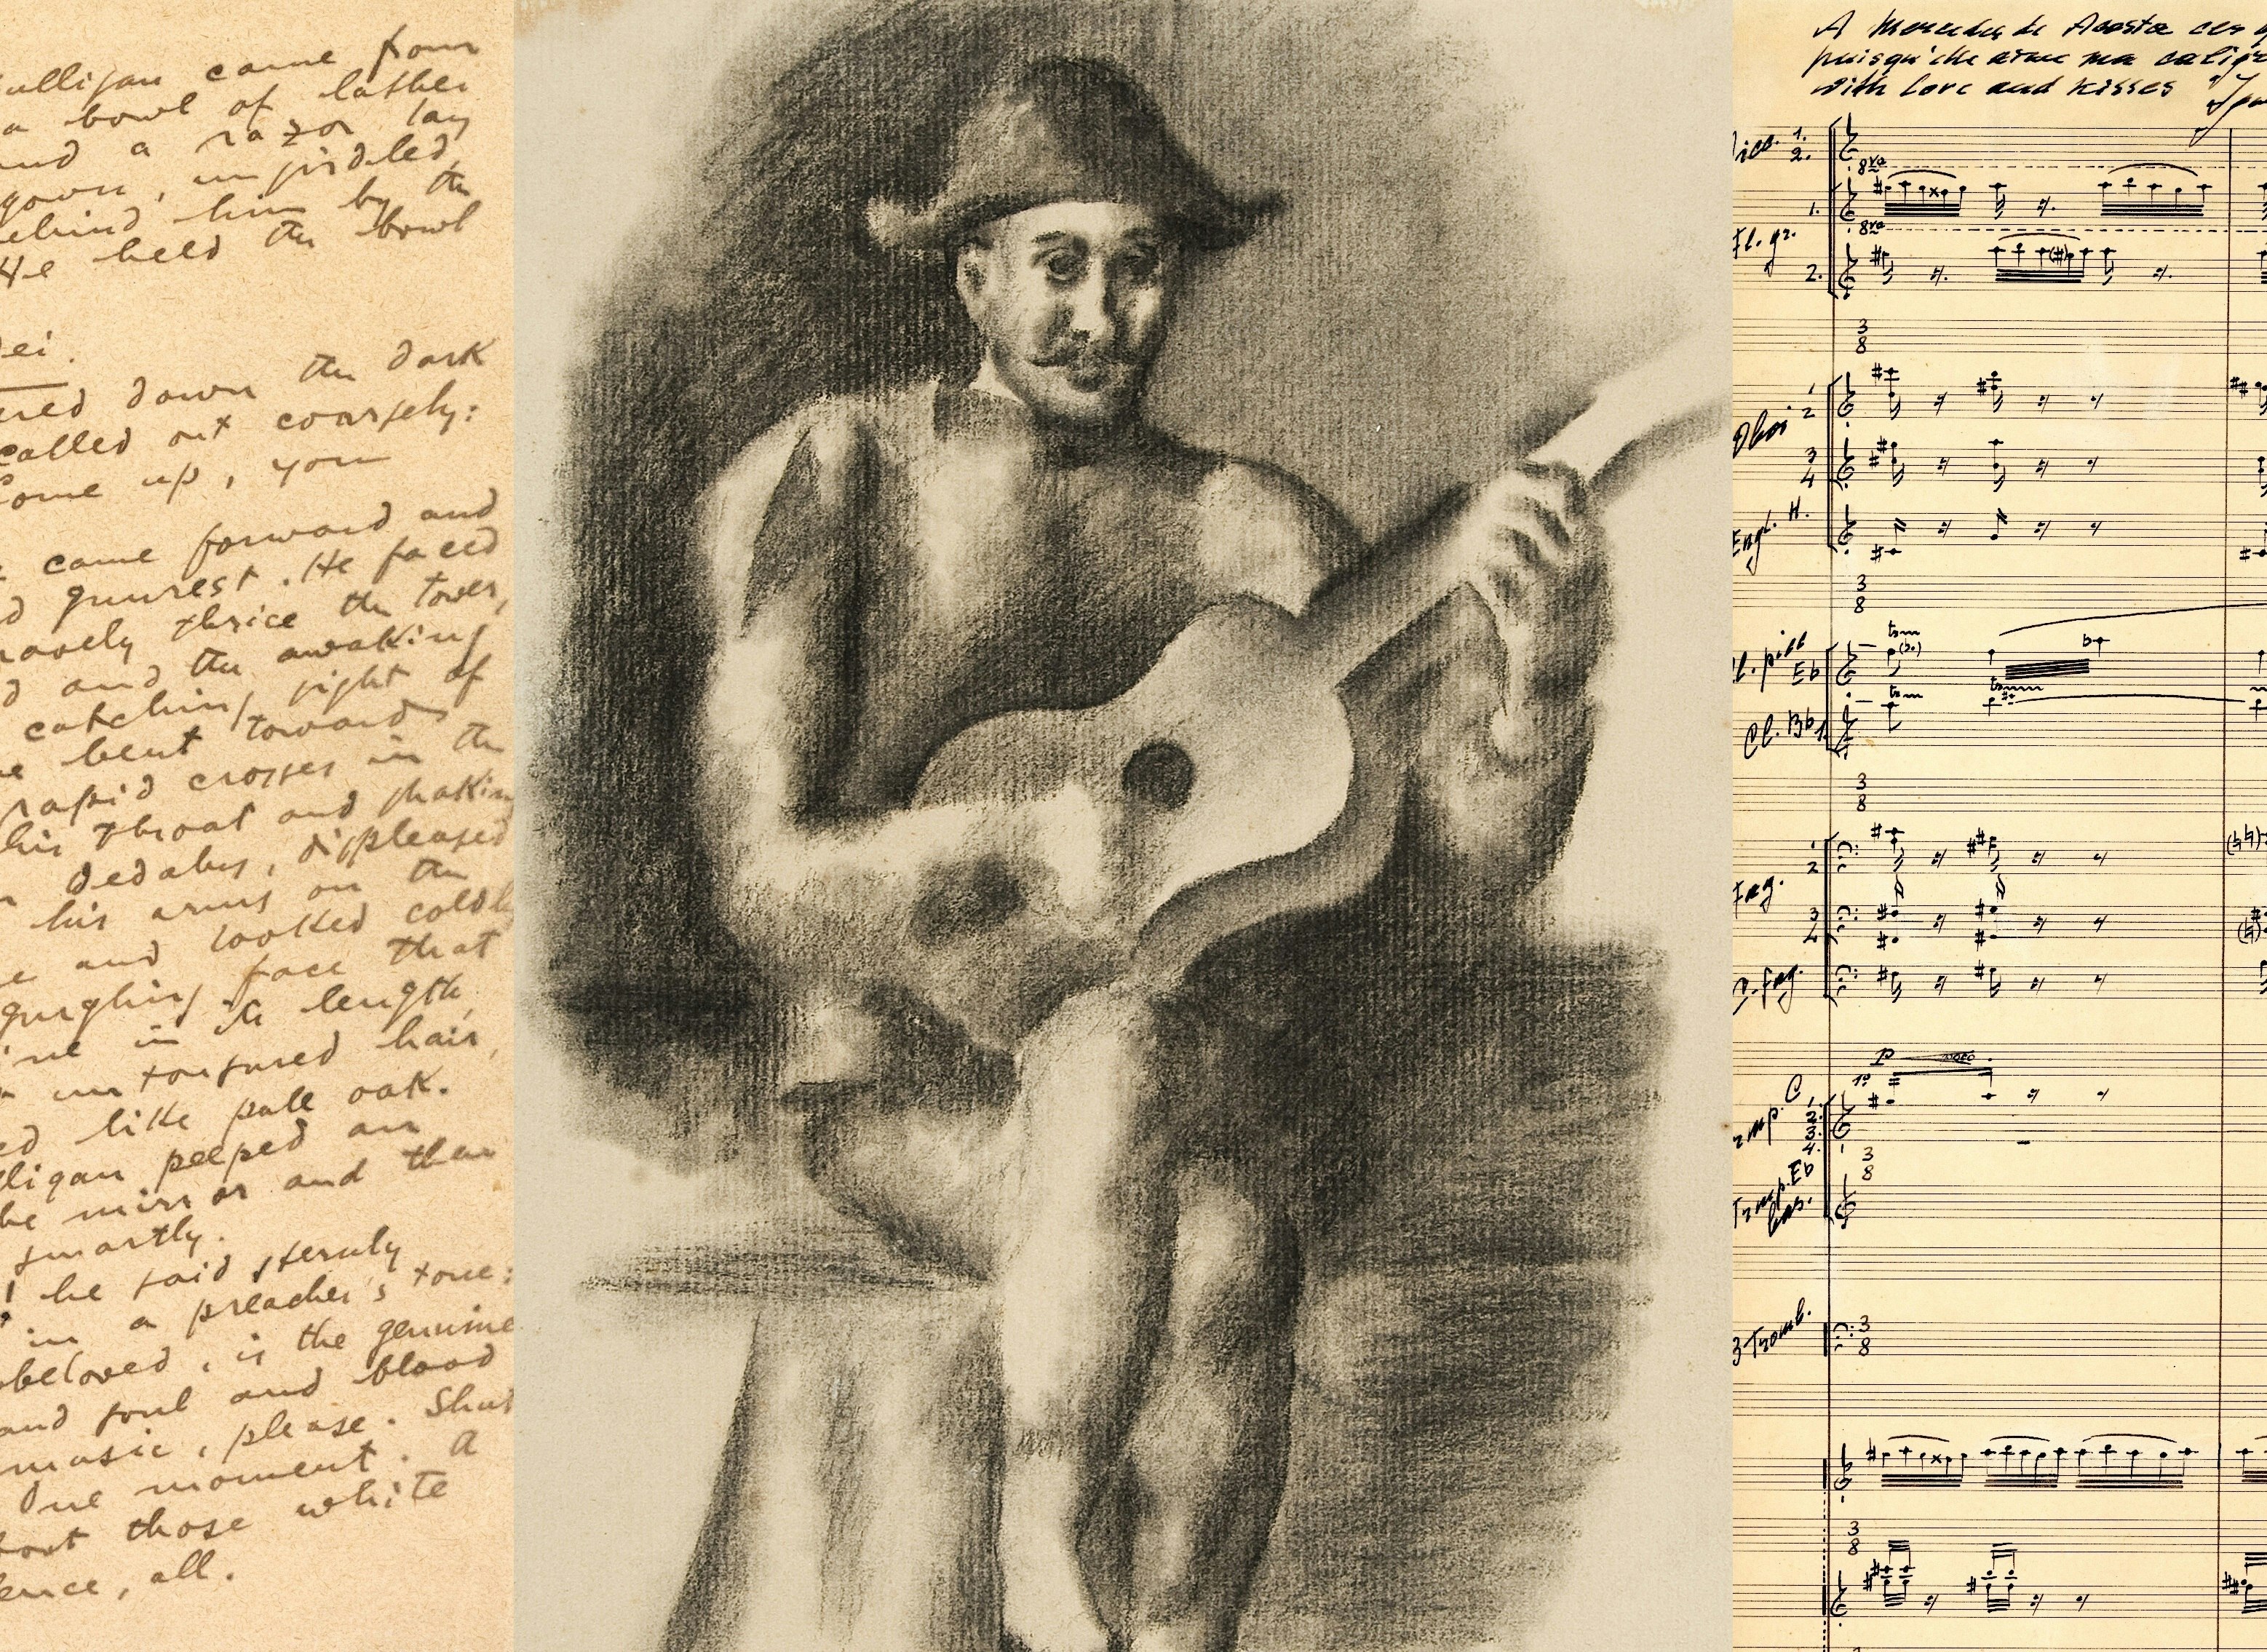 ulligan came from
a bowl of lather
and a razor lay
gown, ungirdled,
ehind him by the
He held the bowl
dei.
ered down the dark
called out coarsely:
Come up, you
came forward and
d gunrest. He faced
ravely thrice the tower,
d and the awaking
catching sight of
e bent towards
rapid crosses in the
his throat and shaking
n Dedalus, displeased
his arms on the
e and looked coldly
gurgling face that
ine in its length,
untonsured hair,
ed like pale oak.
lligan peeped an
he mirror and then
smartly.
! he said sternly
in a preacher's tone:
beloved, is the genuine
and soul and blood
music, please. Shut
One moment. A
bout those white
lence, all.
A Mercedes de Acosta ces
puisqu'elle aime ma caligr
with love and kisses
Picc. 1. 2.
8va
1.
8va
Fl. gr.
2.
3 8
Oboi 1 2
3 4
Engl. H.
3 8
Cl. picc Eb
Cl. Bb 1.
3 8
Fag. 1 2
3 4
C. fag.
P
1º
C 1. 2. 3. 4.
3 8
Eb
3 Tromb. 3 8
3 8